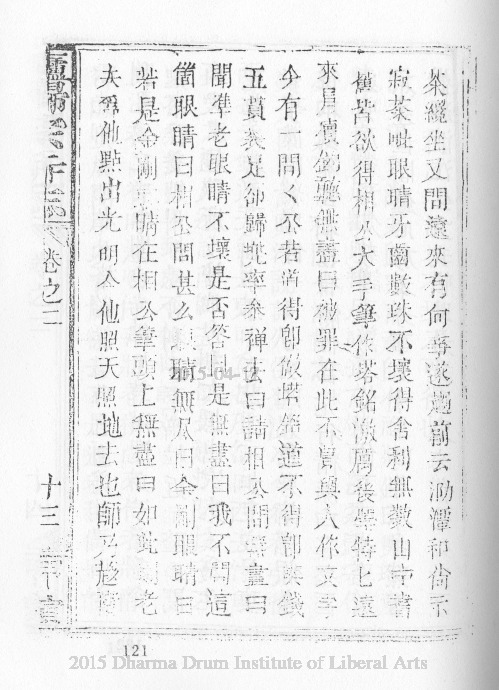 茶纔坐又問遠來有何事遂趨前云泐潭和尚示
寂茶毗眼睛牙齒數珠不壞得舍利無數山中耆
宿皆欲得相公大手筆作塔銘激厲後學特七遠
來冒瀆鈞聽無盡曰被罪在此不曾與人作文字
今有一問〱公若道得卽做塔銘道不得卽與錢
五貫裹足卻歸兜率參禪去曰請相公問無盡曰
聞準老眼睛不壞是否答曰是無盡曰我不問這
箇眼睛曰相公問甚么眼睛無盡曰金剛眼睛曰
若是金剛眼睛在相公筆頭上無盡曰如此則老
夫爲他點出光明令他照天照地去也師乃趨階
卷之二
十三
121
2015-04-12
2015 Dharma Drum Institute of Liberal Arts